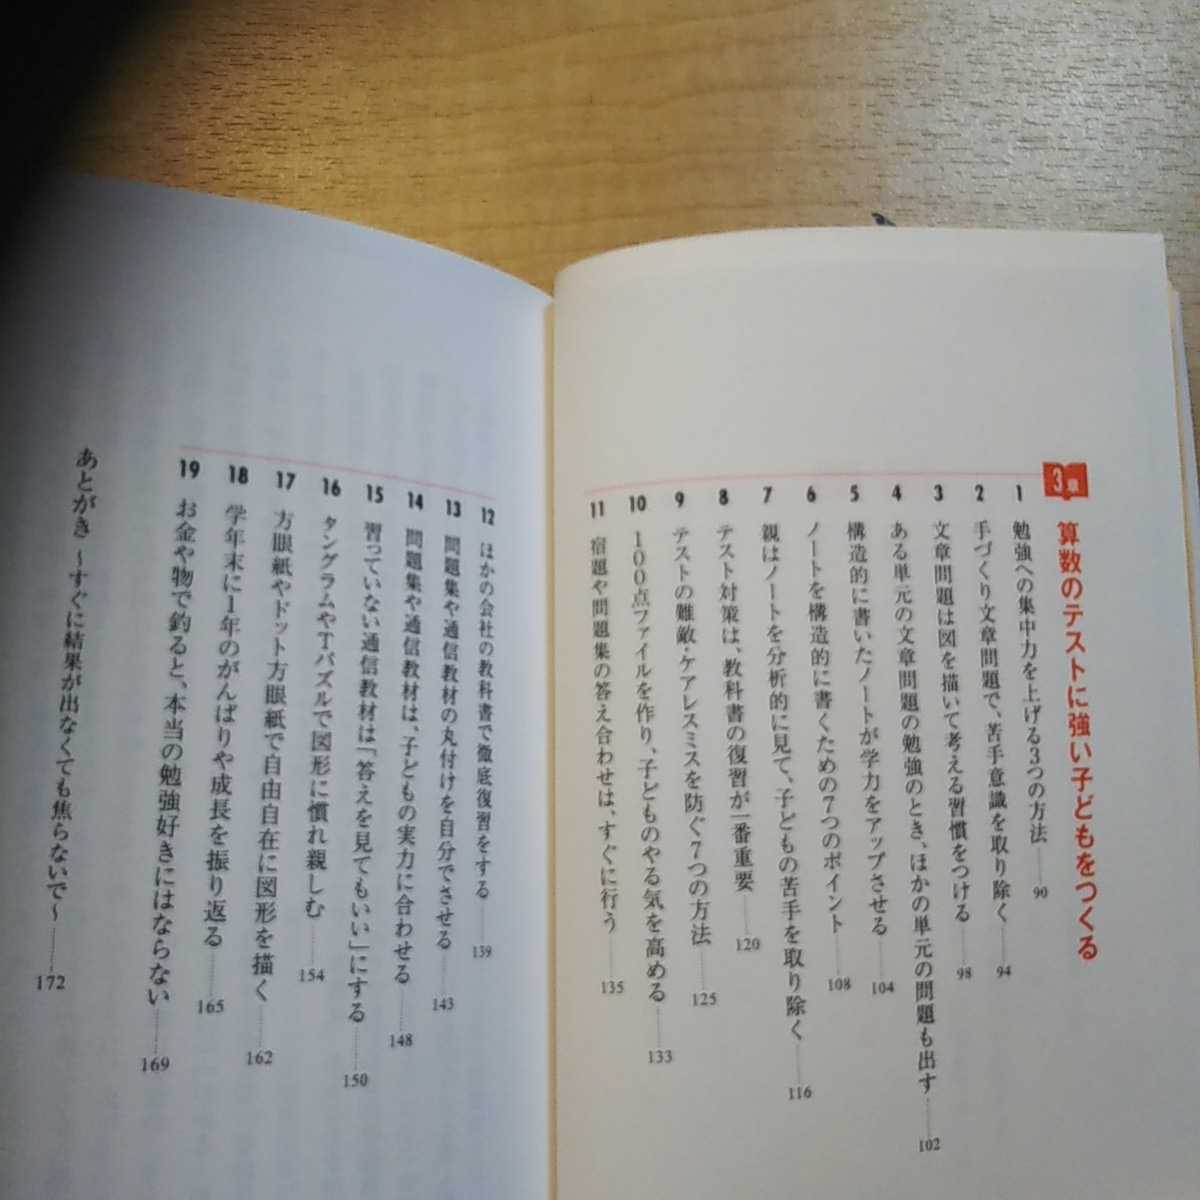 3章 算数のテストに強い子どもをつくる
1 勉強への集中力を上げる3つの方法……90
2 手づくり文章問題で、苦手意識を取り除く……94
3 文章問題は図を描いて考える習慣をつける……98
4 ある単元の文章問題の勉強のとき、ほかの単元の問題も出す……102
5 構造的に書いたノートが学力をアップさせる……104
6 ノートを構造的に書くための7つのポイント……108
7 親はノートを分析的に見て、子どもの苦手を取り除く……116
8 テスト対策は、教科書の復習が一番重要……120
9 テストの難敵・ケアレスミスを防ぐ7つの方法……125
10 100点ファイルを作り、子どものやる気を高める……133
11 宿題や問題集の答え合わせは、すぐに行う……135
12 ほかの会社の教科書で徹底復習をする……139
13 問題集や通信教材の丸付けを自分でさせる……143
14 問題集や通信教材は、子どもの実力に合わせる……148
15 習っていない通信教材は「答えを見てもいい」にする……150
16 タングラムやTパズルで図形に慣れ親しむ……154
17 方眼紙やドット方眼紙で自由自在に図形を描く……162
18 学年末に1年のがんばりや成長を振り返る……165
19 お金や物で釣ると、本当の勉強好きにはならない……169
あとがき ～すぐに結果が出なくても焦らないで～……172